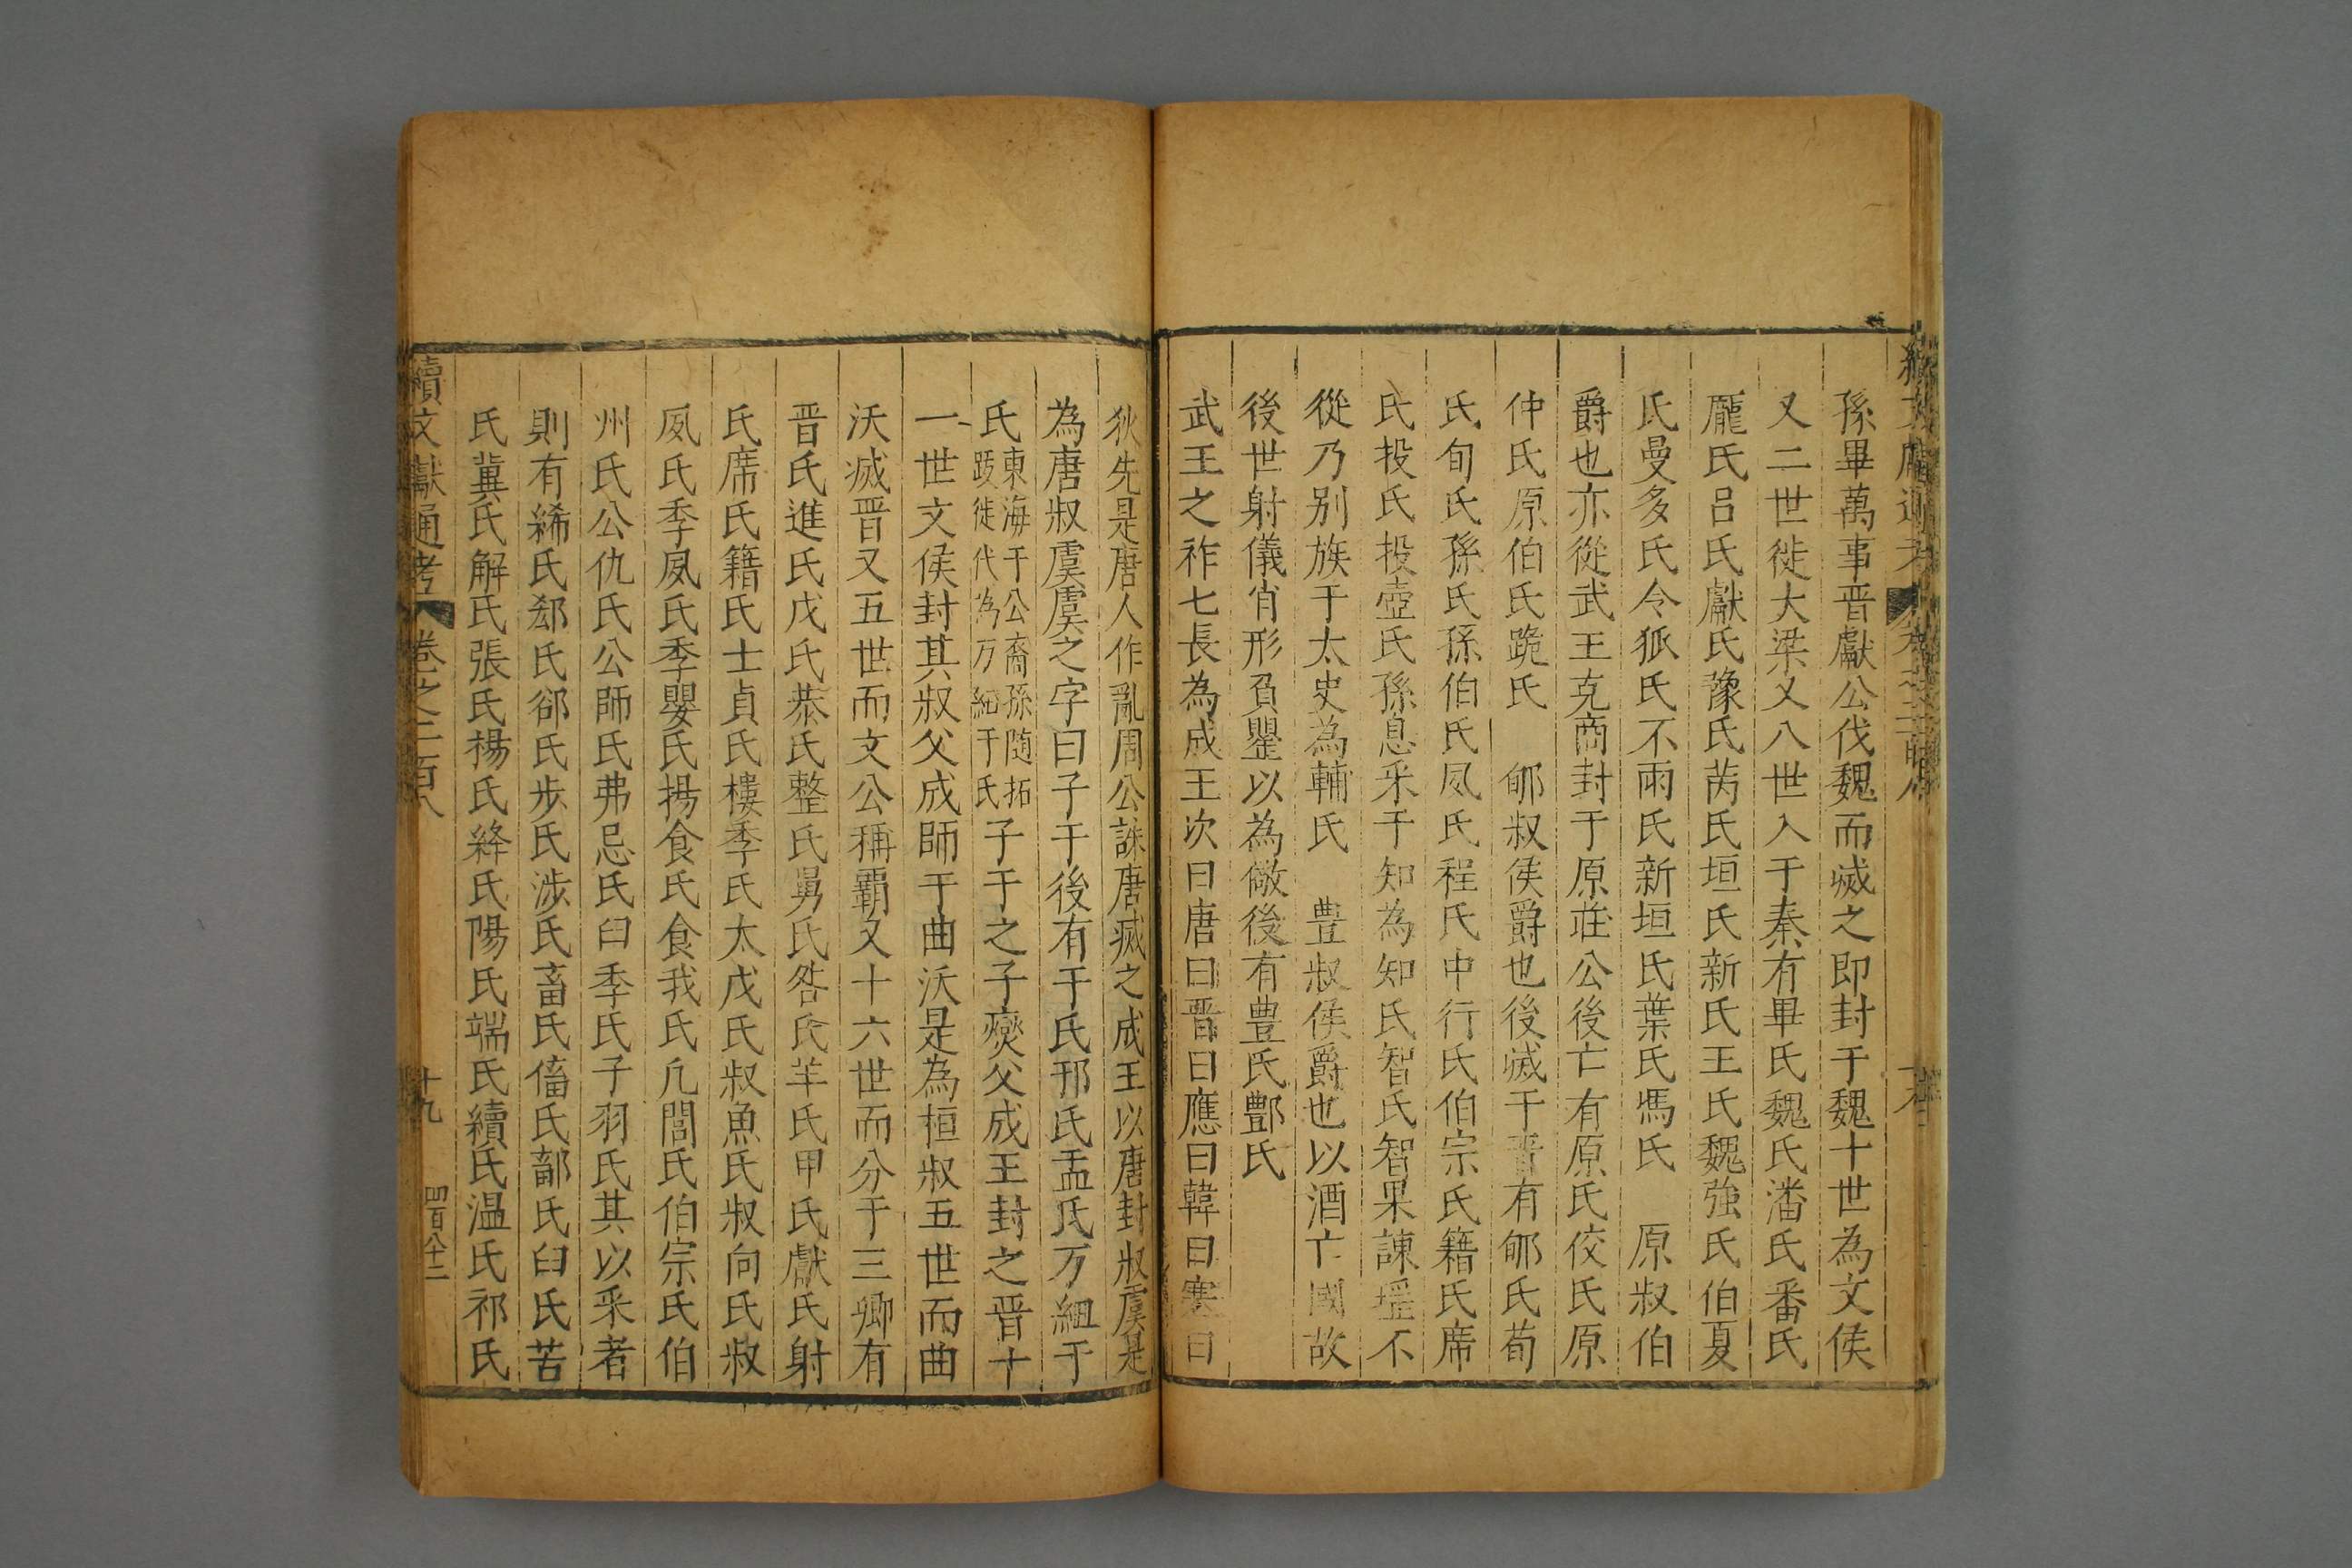 孫畢萬事晋獻公伐魏而滅之即封于魏十世為文侯
又二世徙大梁又八世入于秦有畢氏魏氏潘氏番氏
龎氏吕氏獻氏豫氏芮氏垣氏新氏王氏魏強氏伯夏
氏曼多氏令狐氏不雨氏新垣氏葉氏馮氏 原叔伯
爵也亦從武王克商封于原莊公後亡有原氏佼氏原
仲氏原伯氏跪氏 郇叔侯爵也後滅于晋有郇氏荀
氏旬氏孫氏孫伯氏凨氏程氏中行氏伯宗氏籍氏席
氏投氏投壺氏孫息采于知為知氏智氏智果諫瑶不
從乃别族于太史為輔氏 豊叔侯爵也以酒亡國故
後世射儀肖形負罌以為儆後有豊氏酆氏
武王之祚七長為成王次曰唐曰晋曰應曰韓曰寒曰
狄先是唐人作亂周公誅唐滅之成王以唐封叔虞是
為唐叔虞虞之字曰子于後有于氏邘氏盂氏万紐于
氏東海于公裔孫随拓跋徙代為万紐于氏子于之子燮父成王封之晋十
一世文侯封其叔父成師于曲沃是為桓叔五世而曲
沃滅晋又五世而文公稱霸又十六世而分于三卿有
晋氏進氏戊氏恭氏整氏舅氏咎氏羊氏甲氏獻氏射
氏席氏籍氏士貞氏樓季氏太戊氏叔魚氏叔向氏叔
凨氏季凨氏季嬰氏揚食氏食我氏凢閭氏伯宗氏伯
州氏公仇氏公師氏弗忌氏臼季氏子羽氏其以采者
則有絺氏郄氏郤氏步氏涉氏畜氏傗氏鄐氏臼氏苦
氏冀氏解氏張氏楊氏絳氏陽氏端氏續氏温氏祁氏
續文獻通考 卷之二百八 十九 四百八十二